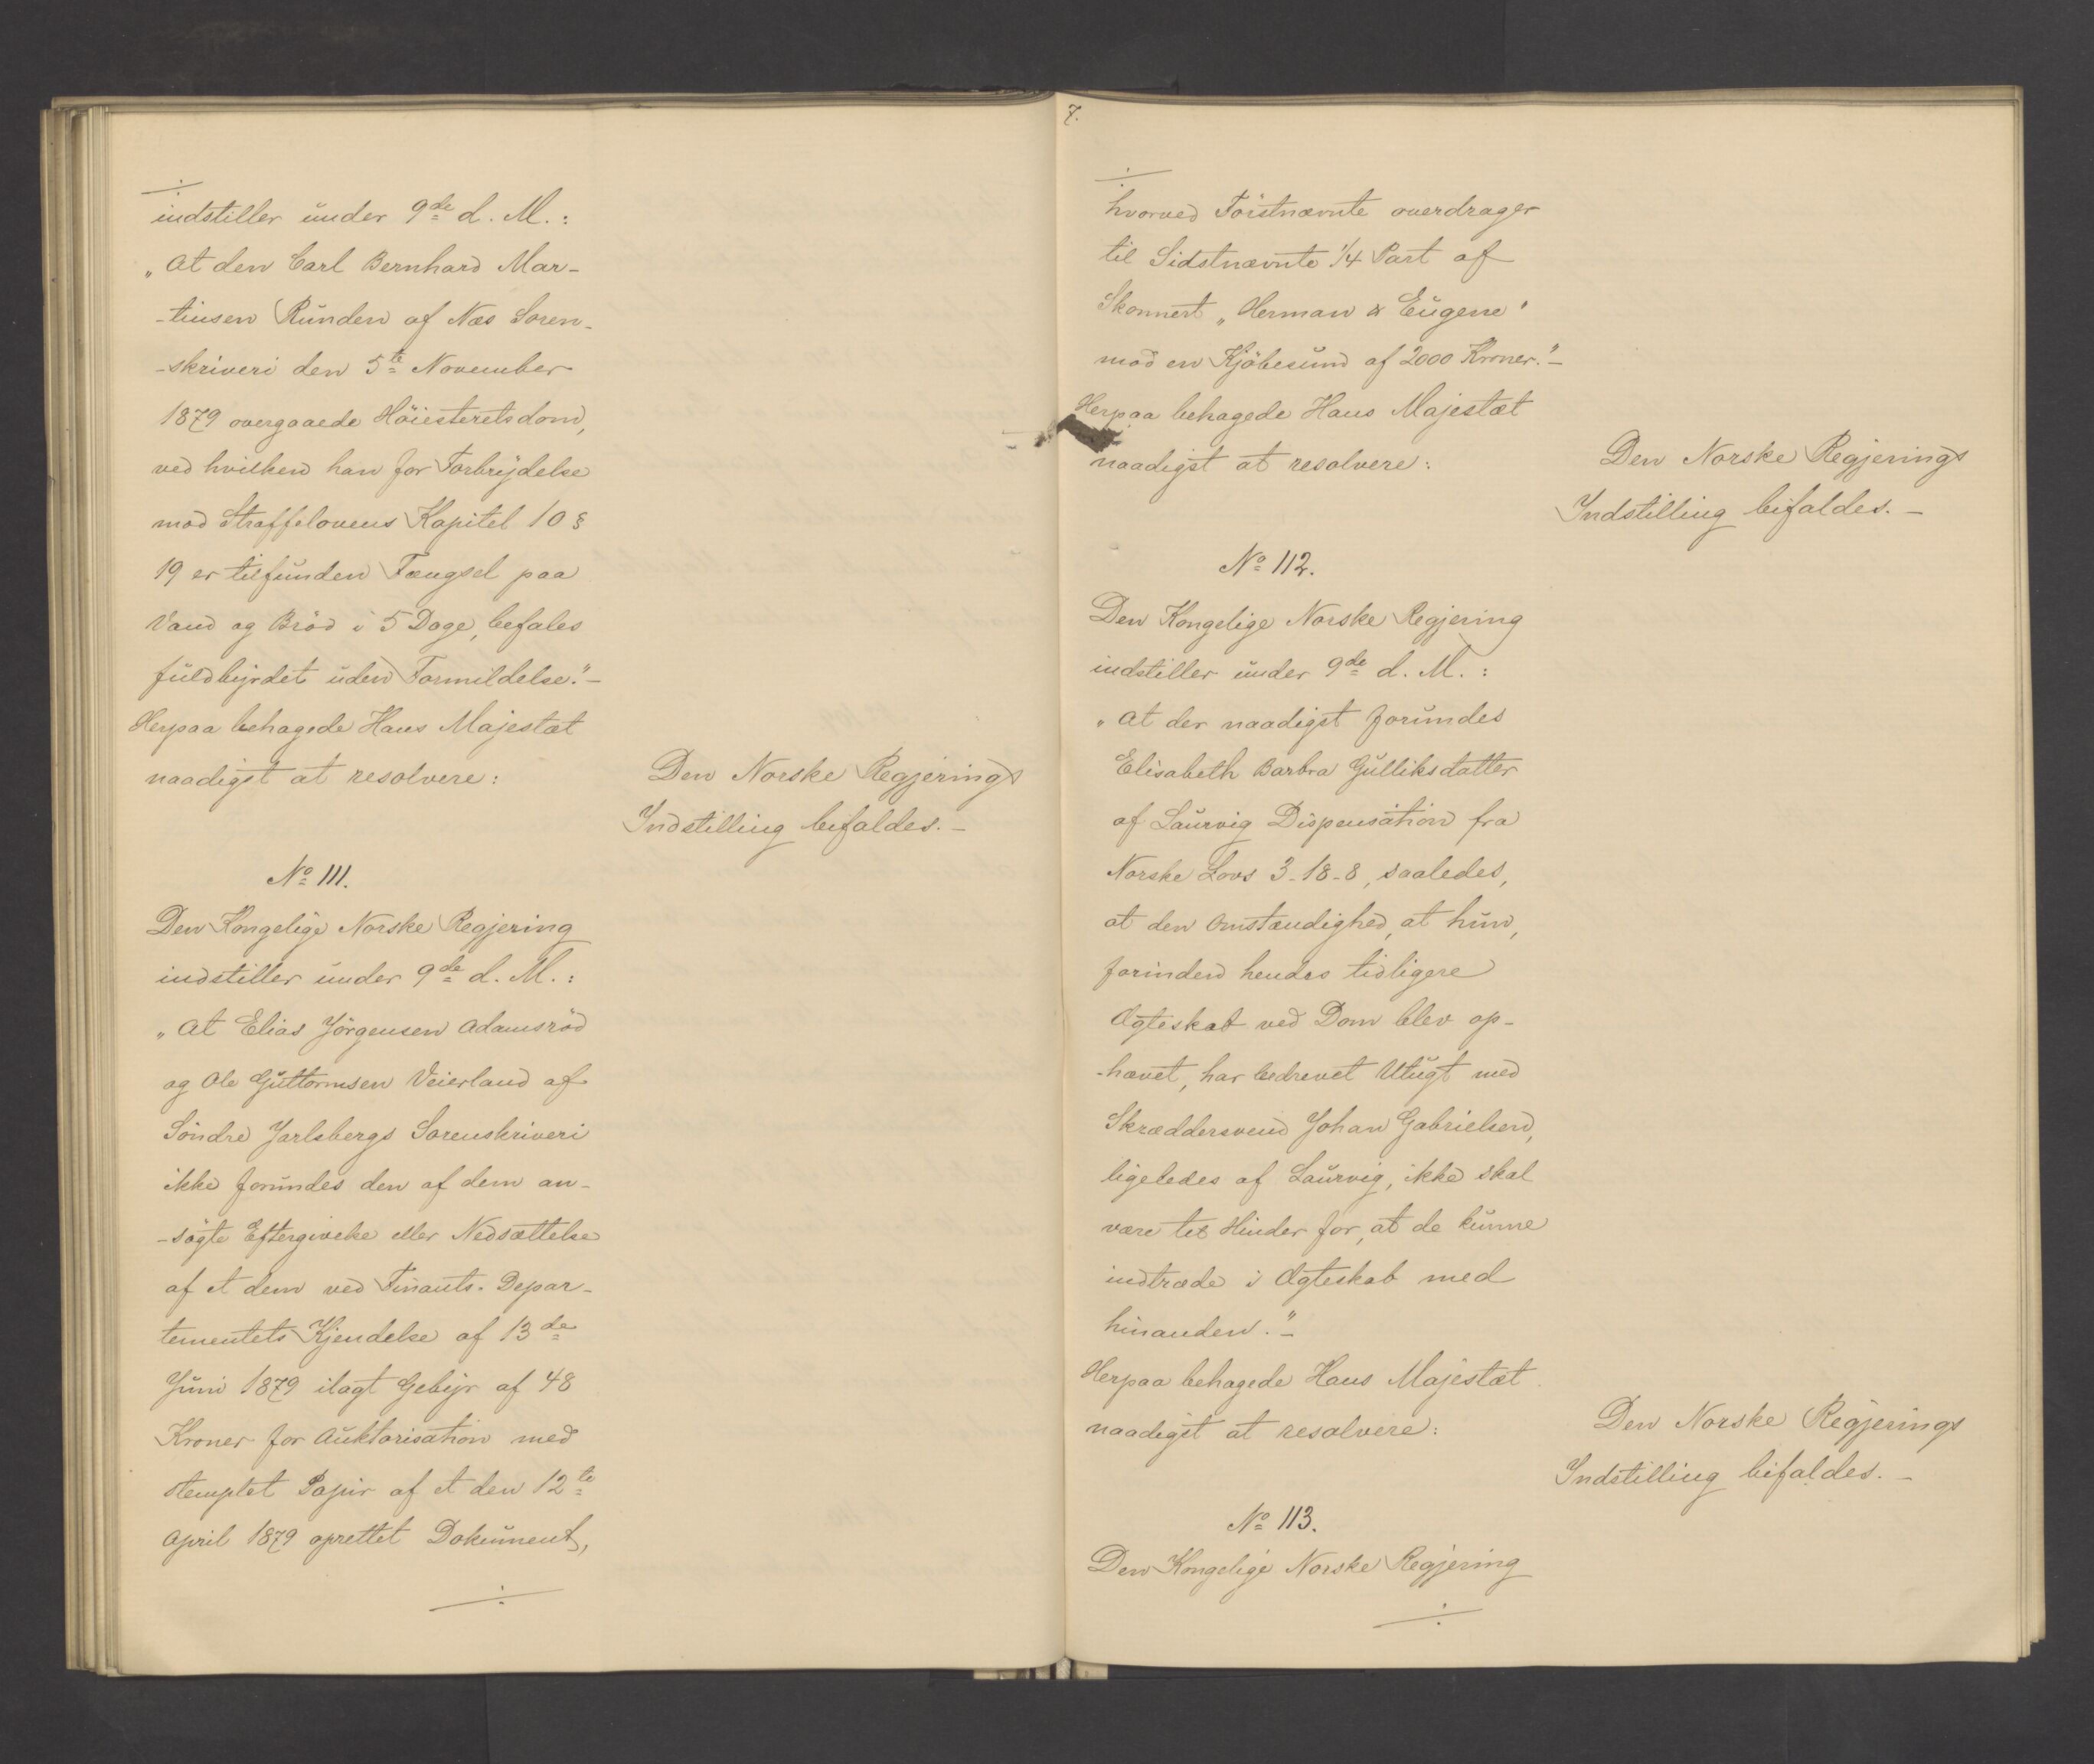 indstiller under 9de d. M.:
„At den Carl Bernhard Mar-
-tinsen Runden af Næs Soren-
-skriveri den 5te November
1879 overgaaede Höiesteretsdom,
ved hvilken han for Forbrydelse
mod Straffelovens Kapitel 10 §
19 er tilfunden Fængsel paa
Vand og Bröd i 5 Dage, befales
fuldbyrdet uden Formildelse."-
Herpaa behagede Hans Majestæt
naadigst at resolvere:
Den Norske Regjerings
Indstilling bifaldes.-
No 111.
Den Kongelige Norske Regjering
indstiller under 9de d. M.:
„At Elias Jörgensen Adamsröd
og Ole Guttormsen Veierland af
Söndre Jarlsbergs Sorenskriveri
ikke forundes den af dem an-
-sögte Eftergivelse eller Nedsættelse
af et dem ved Finants-Depar-
tementets Kjendelse af 13de
Juni 1879 ilagt Gebyr af 48
Kroner for Auktorisation med
stemplet Papir af et den 12te
April 1879 oprettet Dokument,
7.
hvorved Förstnævnte overdrager
til Sidstnævnte 1/4 Part af
Skonnert „Herman & Eugene"
mod en Kjöbesum af 2000 Kroner."-
Herpaa behagede Hans Majestæt
naadigst at resolvere:
Den Norske Regjerings
Indstilling bifaldes.-
No 112.
Den Kongelige Norske Regjering
indstiller under 9de d. M.:
„At der naadigst forundes
Elisabeth Barbra Gulliksdatter
af Laurvig Dispensation fra
Norske Lovs 3-18-8, saaledes,
at den Omstændighed, at hun,
forinden hendes tidligere
Ægteskab ved Dom blev op-
-hævet, har bedrevet Utugt med
Skræddersvend Johan Gabrielsen,
ligeledes af Laurvig, ikke skal
være til Hinder for, at de kunne
indtræde i Ægteskab med
hinanden."-
Herpaa behagede Hans Majestæt
naadigst at resolvere:
Den Norske Regjerings
Indstilling bifaldes.-
No 113.
Den Kongelige Norske Regjering